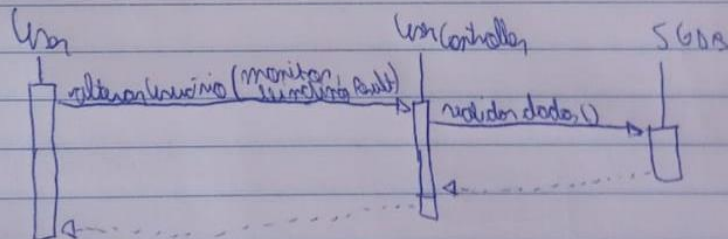 User
UserController
SGDB
alterarUsuário(monitor
validar dados()